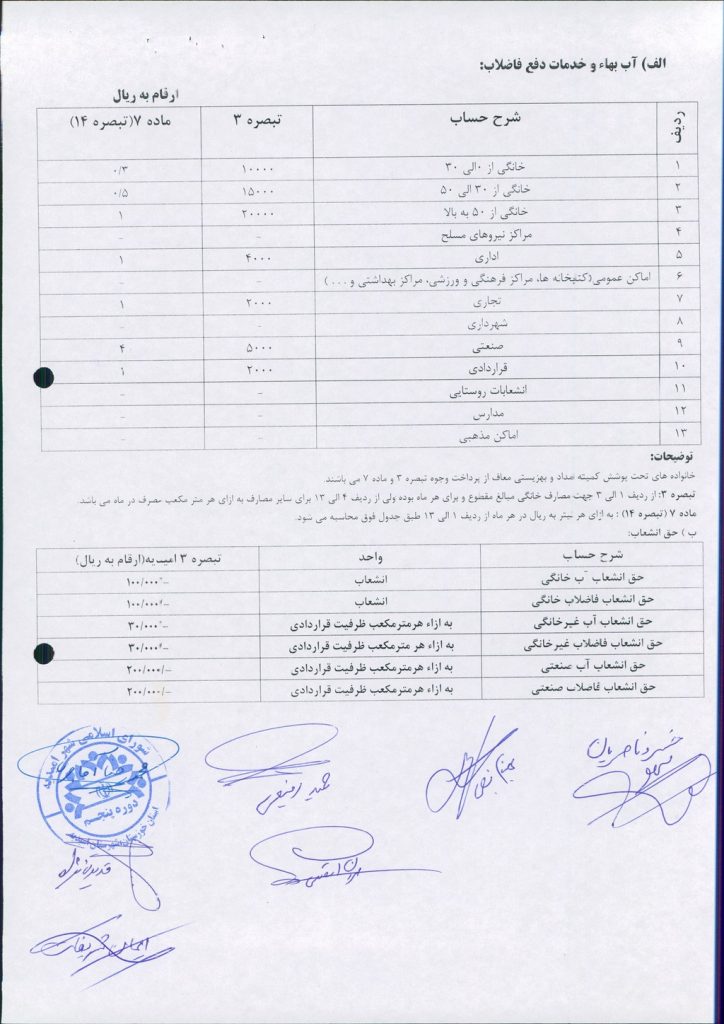 الف) آب بهاء و خدمات دفع فاضلاب:
ارقام به ریال
ردیف شرح حساب تبصره ۳ ماده ۷(تبصره ۱۴)
۱ خانگی از ۰الی ۳۰ ۱۰۰۰۰ ۰/۳
۲ خانگی از ۳۰ الی ۵۰ ۱۵۰۰۰ ۰/۵
۳ خانگی از ۵۰ به بالا ۲۰۰۰۰ ۱
۴ مراکز نیروهای مسلح - -
۵ اداری ۴۰۰۰ ۱
۶ اماکن عمومی(کتابخانه ها، مراکز فرهنگی و ورزشی، مراکز بهداشتی و ...) - -
۷ تجاری ۲۰۰۰ ۱
۸ شهرداری - -
۹ صنعتی ۵۰۰۰ ۴
۱۰ قراردادی ۲۰۰۰ ۱
۱۱ انشعابات روستایی - -
۱۲ مدارس - -
۱۳ اماکن مذهبی - -
توضیحات:
خانواده های تحت پوشش کمیته امداد و بهزیستی معاف از پرداخت وجوه تبصره ۳ و ماده ۷ می باشند.
تبصره ۳: از ردیف ۱ الی ۳ جهت مصارف خانگی مبالغ مقطوع و برای هر ماه بوده ولی از ردیف ۴ الی ۱۳ برای سایر مصارف به ازای هر متر مکعب مصرف در ماه می باشد.
ماده ۷ (تبصره ۱۴) : به ازای هر لیتر به ریال در هر ماه از ردیف ۱ الی ۱۳ طبق جدول فوق محاسبه می شود.
ب ) حق انشعاب:
شرح حساب واحد تبصره ۳ امیدیه(ارقام به ریال)
حق انشعاب آب خانگی انشعاب ۱۰۰/۰۰۰/-
حق انشعاب فاضلاب خانگی انشعاب ۱۰۰/۰۰۰/-
حق انشعاب آب غیرخانگی به ازاء هرمترمکعب ظرفیت قراردادی ۳۰/۰۰۰/-
حق انشعاب فاضلاب غیرخانگی به ازاء هر مترمکعب ظرفیت قراردادی ۳۰/۰۰۰/-
حق انشعاب آب صنعتی به ازاء هرمترمکعب ظرفیت قراردادی ۲۰۰/۰۰۰/-
حق انشعاب فاضلاب صنعتی به ازاء هرمترمکعب ظرفیت قراردادی ۲۰۰/۰۰۰/-
خسرو ناصریان
شورای اسلامی شهر امیدیه
دوره پنجم
استان خوزستان شهرستان امیدیه